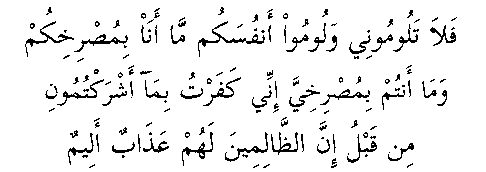 فَلاَ تَلُومُونِي وَلُومُواْ أَنفُسَكُم مَّا أَنَاْ بِمُصْرِخِكُمْ
وَمَا أَنتُمْ بِمُصْرِخِيَّ إِنِّي كَفَرْتُ بِمَآ أَشْرَكْتُمُونِ
مِن قَبْلُ إِنَّ الظَّالِمِينَ لَهُمْ عَذَابٌ أَلِيمٌ